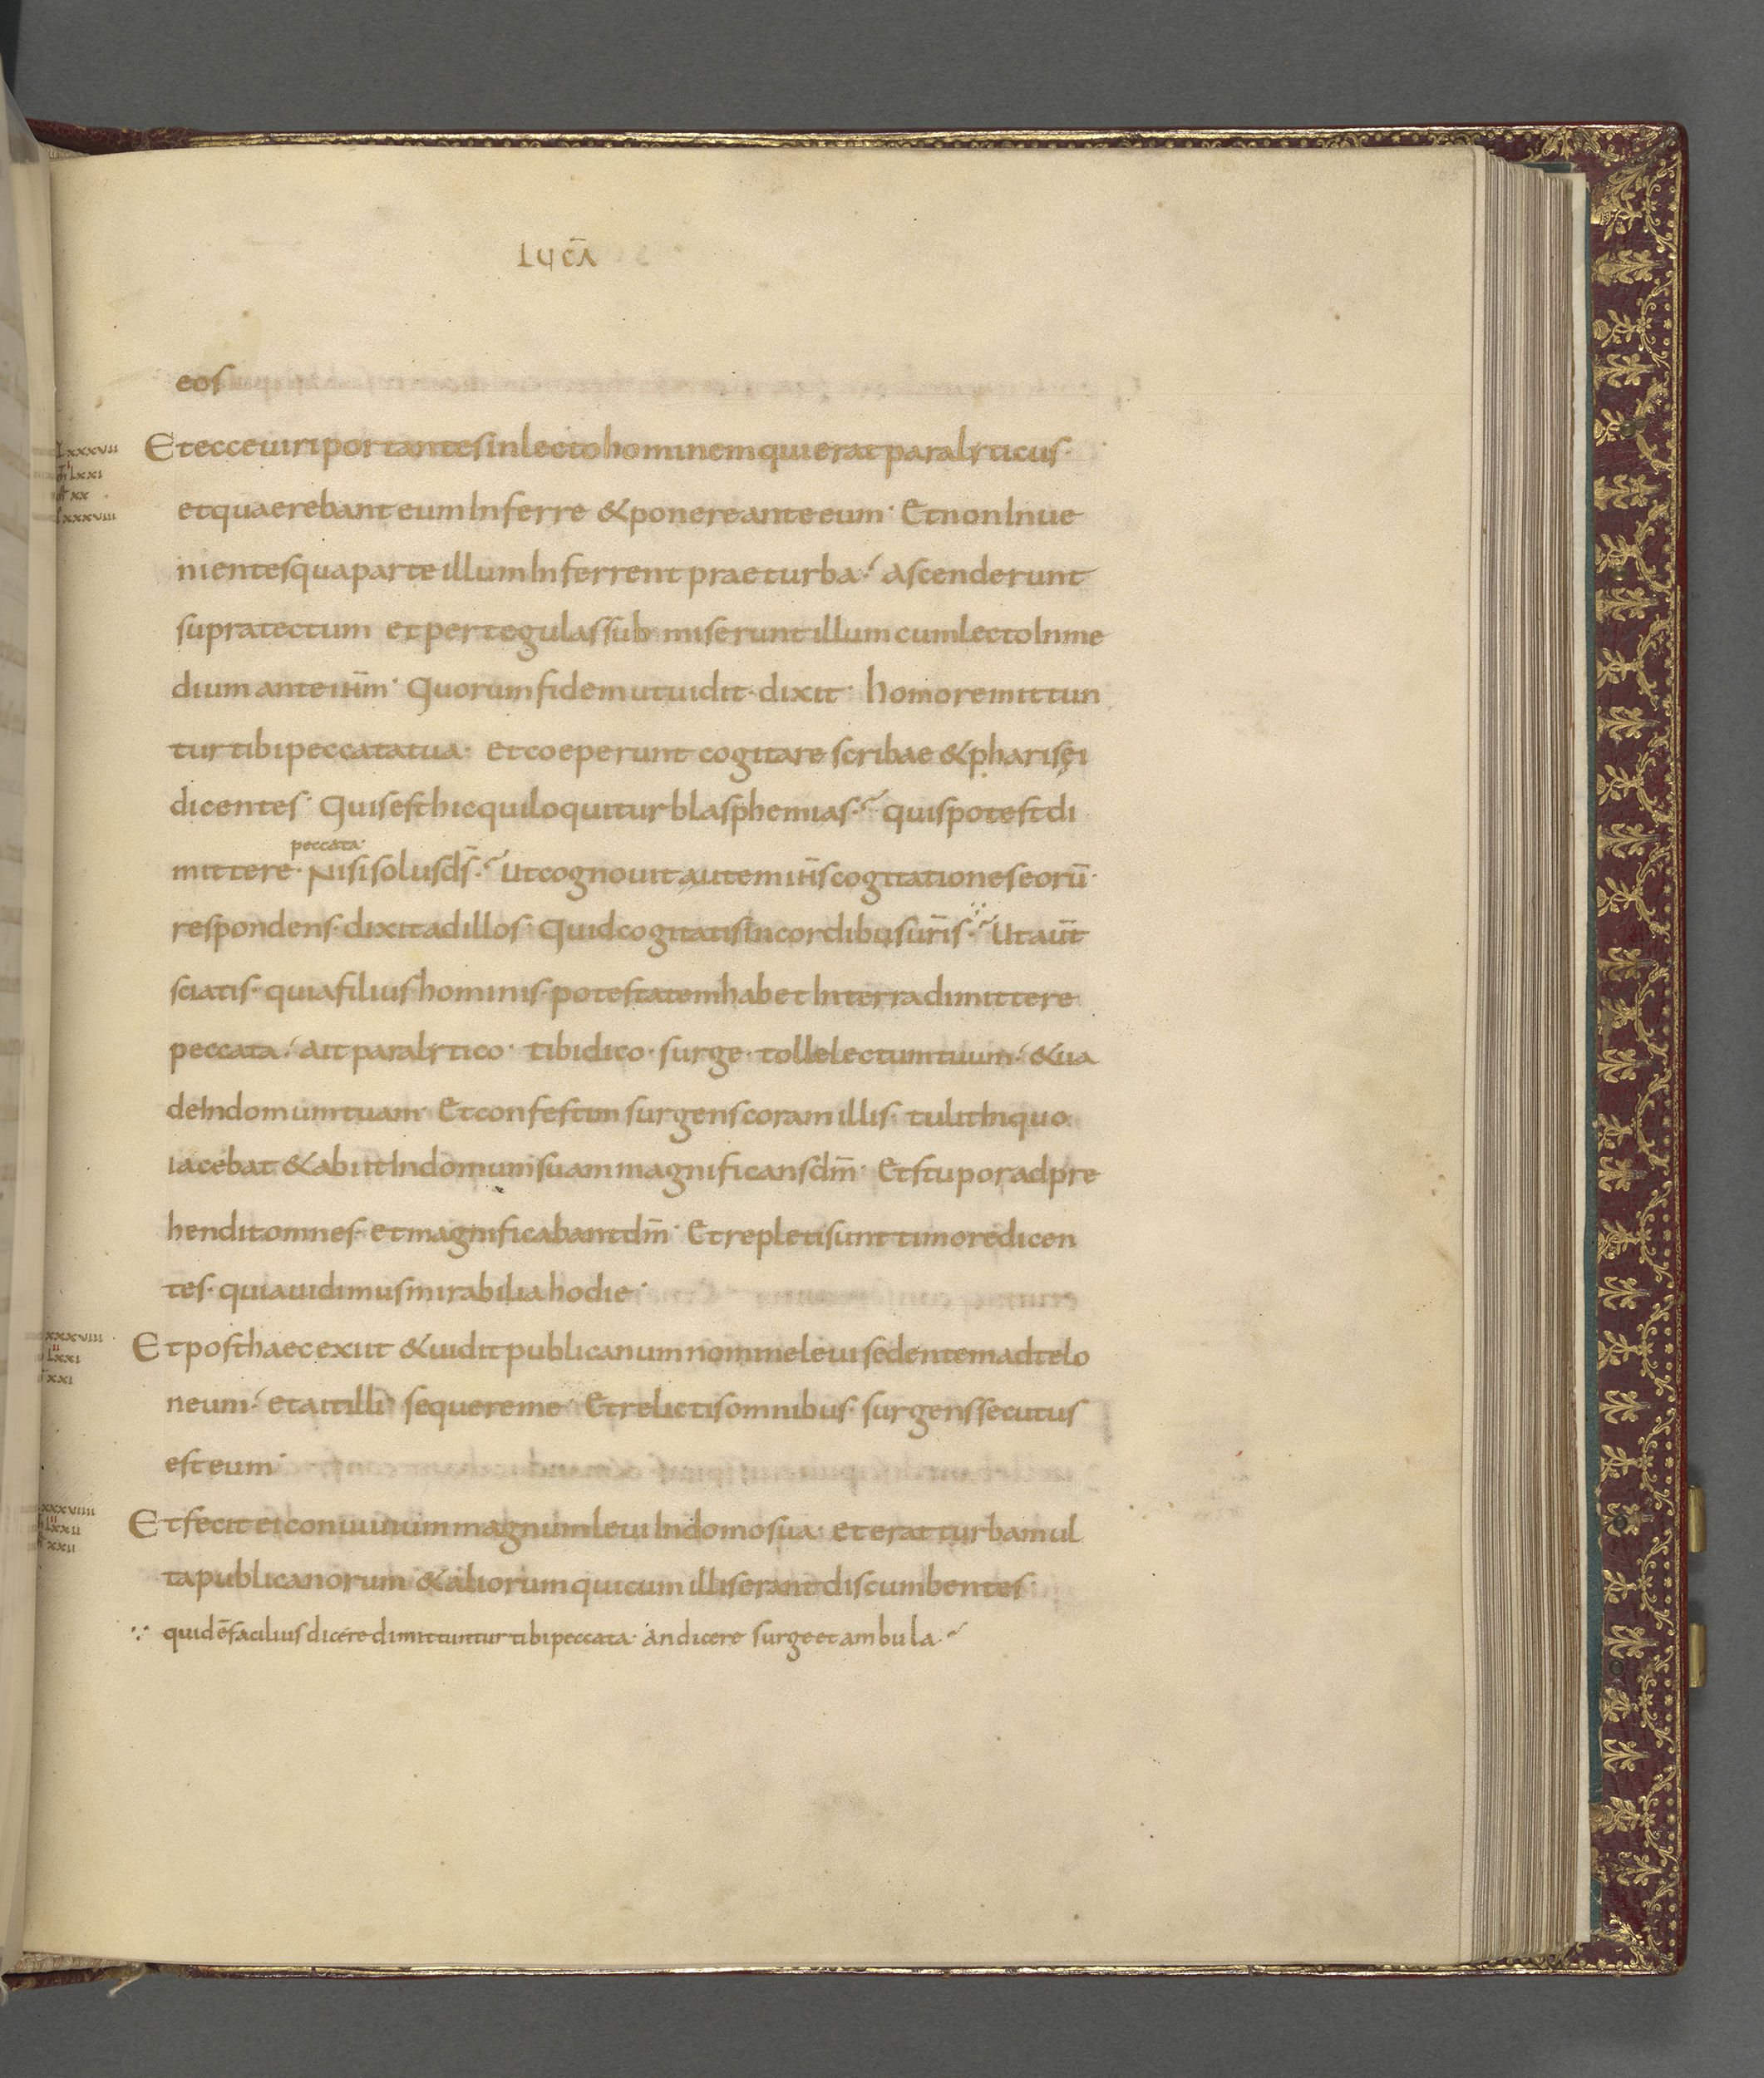 LUCĀ
eos
Et ecce uiri portantes in lecto hominem qui erat paralyticus·
et quaerebant eum Inferre & ponere ante eum· Et non Inue
nientes qua parte illum Inferrent prae turba·́ ascenderunt
supra tectum et per tegulas submiserunt illum cum lecto In me
dium ante ihm̄· Quorum fidem ut uidit· dixit· homo remittun
tur tibi peccata tua· et coeperunt cogitare scribae & pharisęi
dicentes· Quis est hic qui loquitur blasphemias·~ quis potest di
peccata·
mittere· Nisi solus dS̄·~ Ut cognouit autem ihS̄ cogitationes eorū·
respondens· dixit ad illos· Quid cogitatis In cordibus ur̄is·~ ∵ Ut aūt
sciatis· quia filius hominis potestatem habet In terra dimittere
peccata·́ ait paralytico· tibi dico· surge· tolle lectum tuum·́ & ua
de In domum tuam· Et confestim surgens coram illis· tulit In quo
iacebat & abiit In domum suam magnificans dm̄· Et stupor adpre
hendit omnes· et magnificabant dm̄· Et repleti sunt timore dicen
tes· quia uidimus mirabilia hodie·
Et post haec exiit & uidit publicanum nomine leui sedentem ad telo
neum·́ et ait illi· sequere me· Et relictis omnibus· surgens secutus
est eum·
Et fecit ei conuiuium magnum leui In domo sua· et erat turba mul
ta publicanorum & aliorum qui cum illis erant discumbentes·
∵ quid ē facilius dicere dimittuntur tibi peccata· an dicere surge et ambula·~